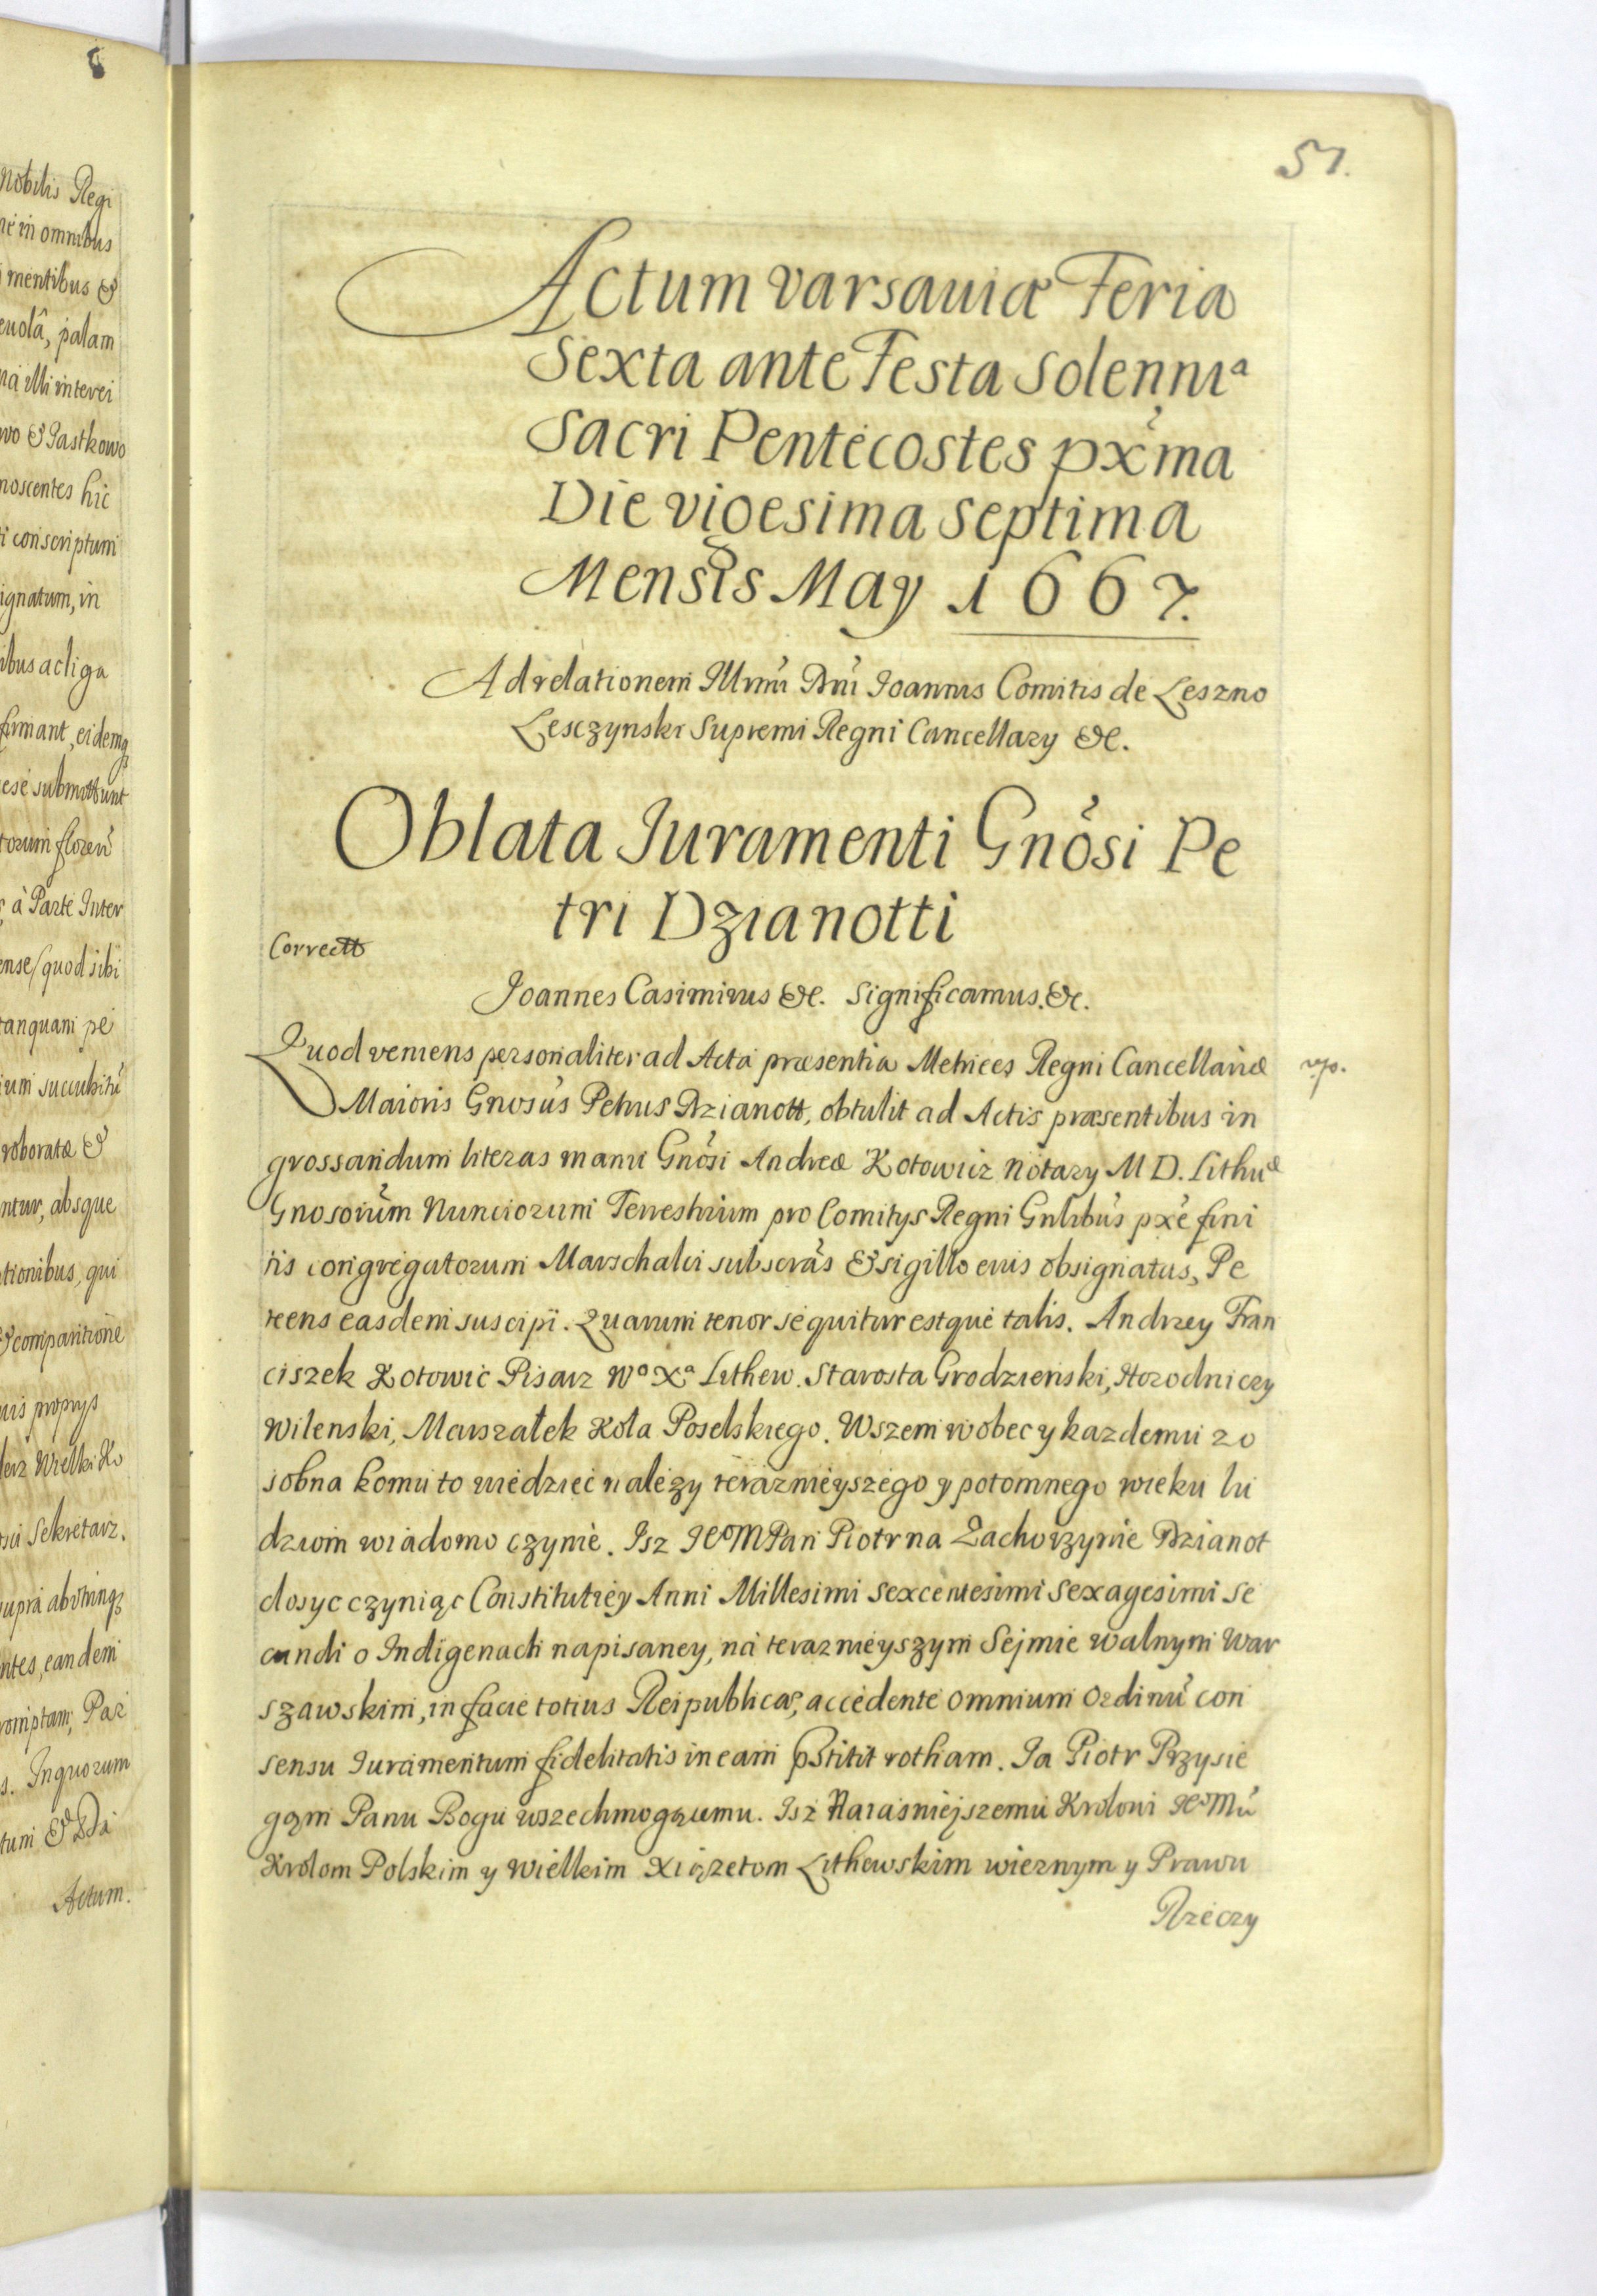 nobilis Regi
in omnibus
mentibus &
palam
illi interei
& Pastkowo
noscentes hic
conscriptum
ignatum, in
ibus ac liga
firmant, eidemq3
ese submittunt
florenũ
à Parte Inter
ense/quod sibi
tanquam pe
ium succubitũ
roboratæ &
ntur, absque
tionibus, qui
& comparitione
uis proprys
Wielki Ko
Sekretarz.
supra
ntes, eandem
romptam, Par
s. In quorum
tum &
Actum.
51.
Actum Varsauiæ Feria
Sexta ante Festa Solennia
Sacri Pentecostes px̃ma
Die vigesima septima
Mensis May 1667.
Ad relationem Illrmi Dni Joannis Comitis de Leszno
Lesczynski Supremi Regni Cancellary &c.
Oblata Juramenti Gnõsi Pe
tri Dzianotti
Correctt
Joannes Casimirus &c. Significamus. &c.
Quod veniens personaliter ad Acta præsentia Metrices Regni Cancellariæ
Maioris Gnosus Petrus Dzianott, obtulit ad Actis præsentibus in
grossandum literas manu Gnõsi Andreæ Kotowicz Notary M D. Lithuæ
Gnosorũm Nunciorum Terrestrium pro Comitys Regni Gnlibũs pxẽ fini
tis congregatorum Marschalci subscrãs & sigillo eius obsignatas, Pe
teens easdem suscipi. Quarum tenor sequitur estque talis. Andrzey Fran
ciszek Kotowic Pisarz Wo Xa Lithew. Starosta Grodzienski, Horodniczy
Wilenski, Marszałek Koła Poselskiego. Wszem wobec y kazdemu zo
sobna komu to wiedziec nalezy teraznieyszego y potomnego wieku lu
dziom wiadomo czynie. Isz JeoM Pan Piotr na Zachorzynie Dzianot
dosyc cząc Constitutiey Anni Millesimi sexcentesimi Sexagesimi Se
cundi o Indigenach napisaney, na terazmeyszym Sejmie walnym War
szawskim, in facie totius Reipublicæ, accedente omnium ordinũ con
sensu Juramentum fidelitatis in eam pstitit rotham. Ja Piotr Przysie
gąm Panu Bogu wszechmogącemu. Isz Naiasniejszemu Krolowi JeoMu
Krolom Polskim y Wielkim Xiązetom Lithewskim wiernym y Prawu
Rzeczy